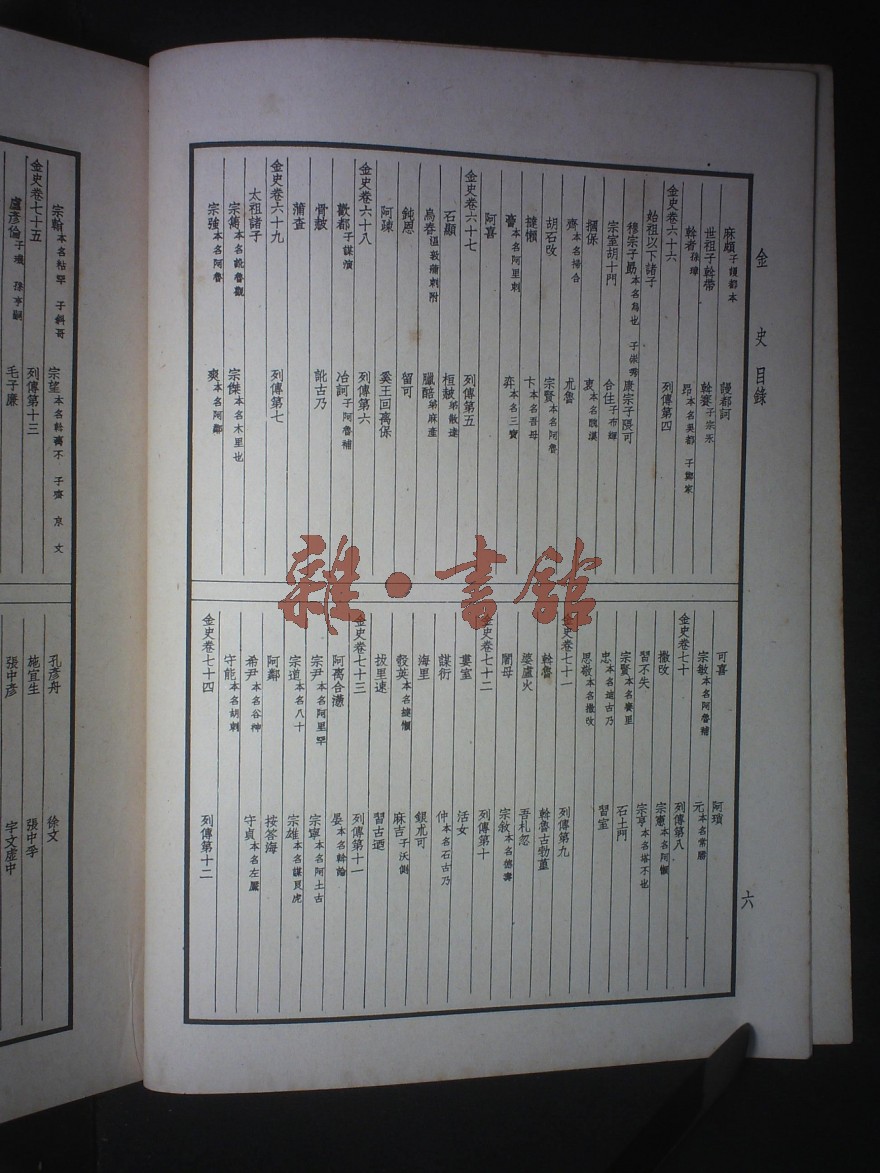 金史 目錄
六
麻頗子謾都本 謾都訶
世祖子斡帶 斡賽子宗永
斡者孫璋 昂本名吳都 子鄭家
金史卷六十六 列傳第四
始祖以下諸子
穆宗子勗本名烏也 子宗秀 康宗子隈可
宗室胡十門 合住子布輝
摑保 衷本名醜漢
齊本名掃合 朮魯
胡石改 宗賢本名阿魯
撻懶 卞本名吾母
膏本名阿里剌 弈本名三寶
阿喜
金史卷六十七 列傳第五
石顯 桓赧弟散達
烏春溫敦蒲剌附 臘醅弟麻產
鈍恩 留可
阿疎 奚王回离保
金史卷六十八 列傳第六
歡都子謀演 冶訶子阿魯補
骨赧 訛古乃
蒲查
金史卷六十九 列傳第七
太祖諸子
宗雋本名訛魯觀 宗傑本名木里也
宗強本名阿魯 爽本名阿鄰
可喜 阿瑣
宗敏本名阿魯補 元本名常勝
金史卷七十 列傳第八
撒改 宗憲本名阿懶
習不失 宗亨本名塔不也
宗賢本名賽里 石土門
忠本名迪古乃 習室
思敬本名撒改
金史卷七十一 列傳第九
斡魯 斡魯古勃菫
婆盧火 吾札忽
闍母 宗敘本名德壽
金史卷七十二 列傳第十
婁室 活女
謀衍 仲本名石古乃
海里 銀朮可
彀英本名撻懶 麻吉子沃側
拔里速 習古迺
金史卷七十三 列傳第十一
阿离合懣 晏本名斡論
宗尹本名阿里罕 宗寧本名阿土古
宗道本名八十 宗雄本名謀良虎
阿鄰 按答海
希尹本名谷神 守貞本名左靨
守能本名胡剌
金史卷七十四 列傳第十二
宗翰本名粘罕 子斜哥 宗望本名斡离不 子齊 京 文
金史卷七十五 列傳第十三
盧彥倫子璣 孫亨嗣 毛子廉
孔彥舟 徐文
施宜生 張中孚
張中彥 宇文虛中
雜·書館